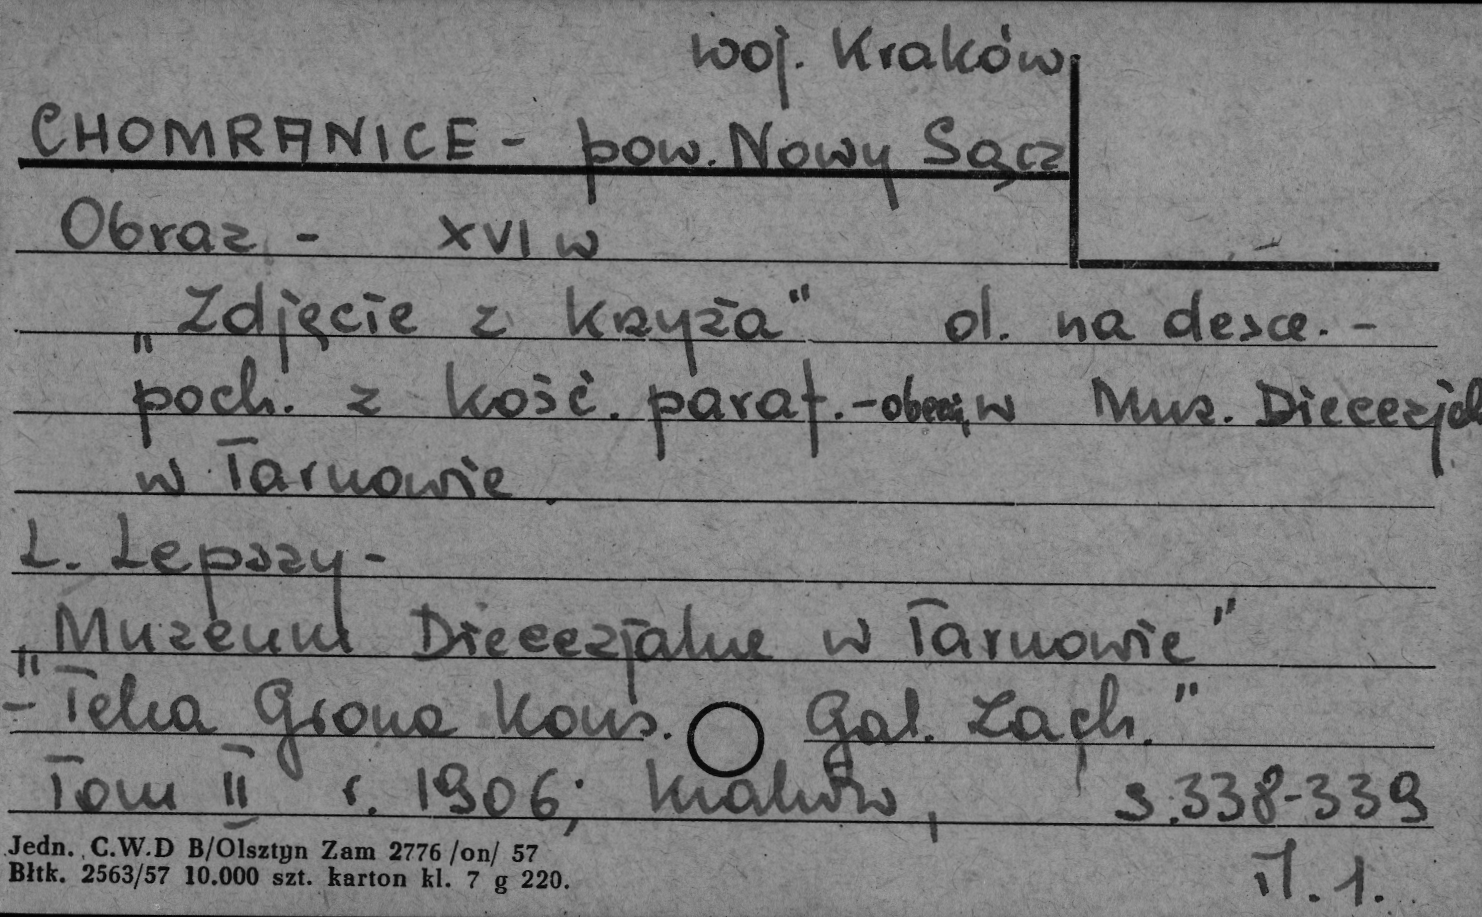 woj. Kraków
CHOMRANICE - pow. Nowy Sącz
Obraz - XVI w
„Zdjęcie z Krzyża" ol. na desce. -
poch. z kość. paraf. - obecn. w Muz. Diecezjal
w Tarnowie
L. Lepszy -
„Muzeum Diecezjalne w Tarnowie"
- „Teka Grona Kons. Gal. Zach."
Tom II r. 1906; Kraków, s. 338-339
il. 1.
Jedn. C.W.D B/Olsztyn Zam 2776 /on/ 57
Błtk. 2563/57 10.000 szt. karton kl. 7 g 220.